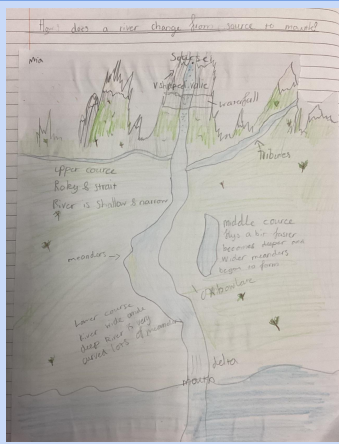 How does a river change from source to mouth?
Mia
Sourse
V shapped valle
waterfall
Tributes
upper course
Roky & strat
River is shallow & narrow
middle cource
flys a bit faster
because deeper and
wider meanders
begin to form
meanders
oxbow lake
Lower course
River wide and
deep River is very
curved lots of meanders
delta
mouth